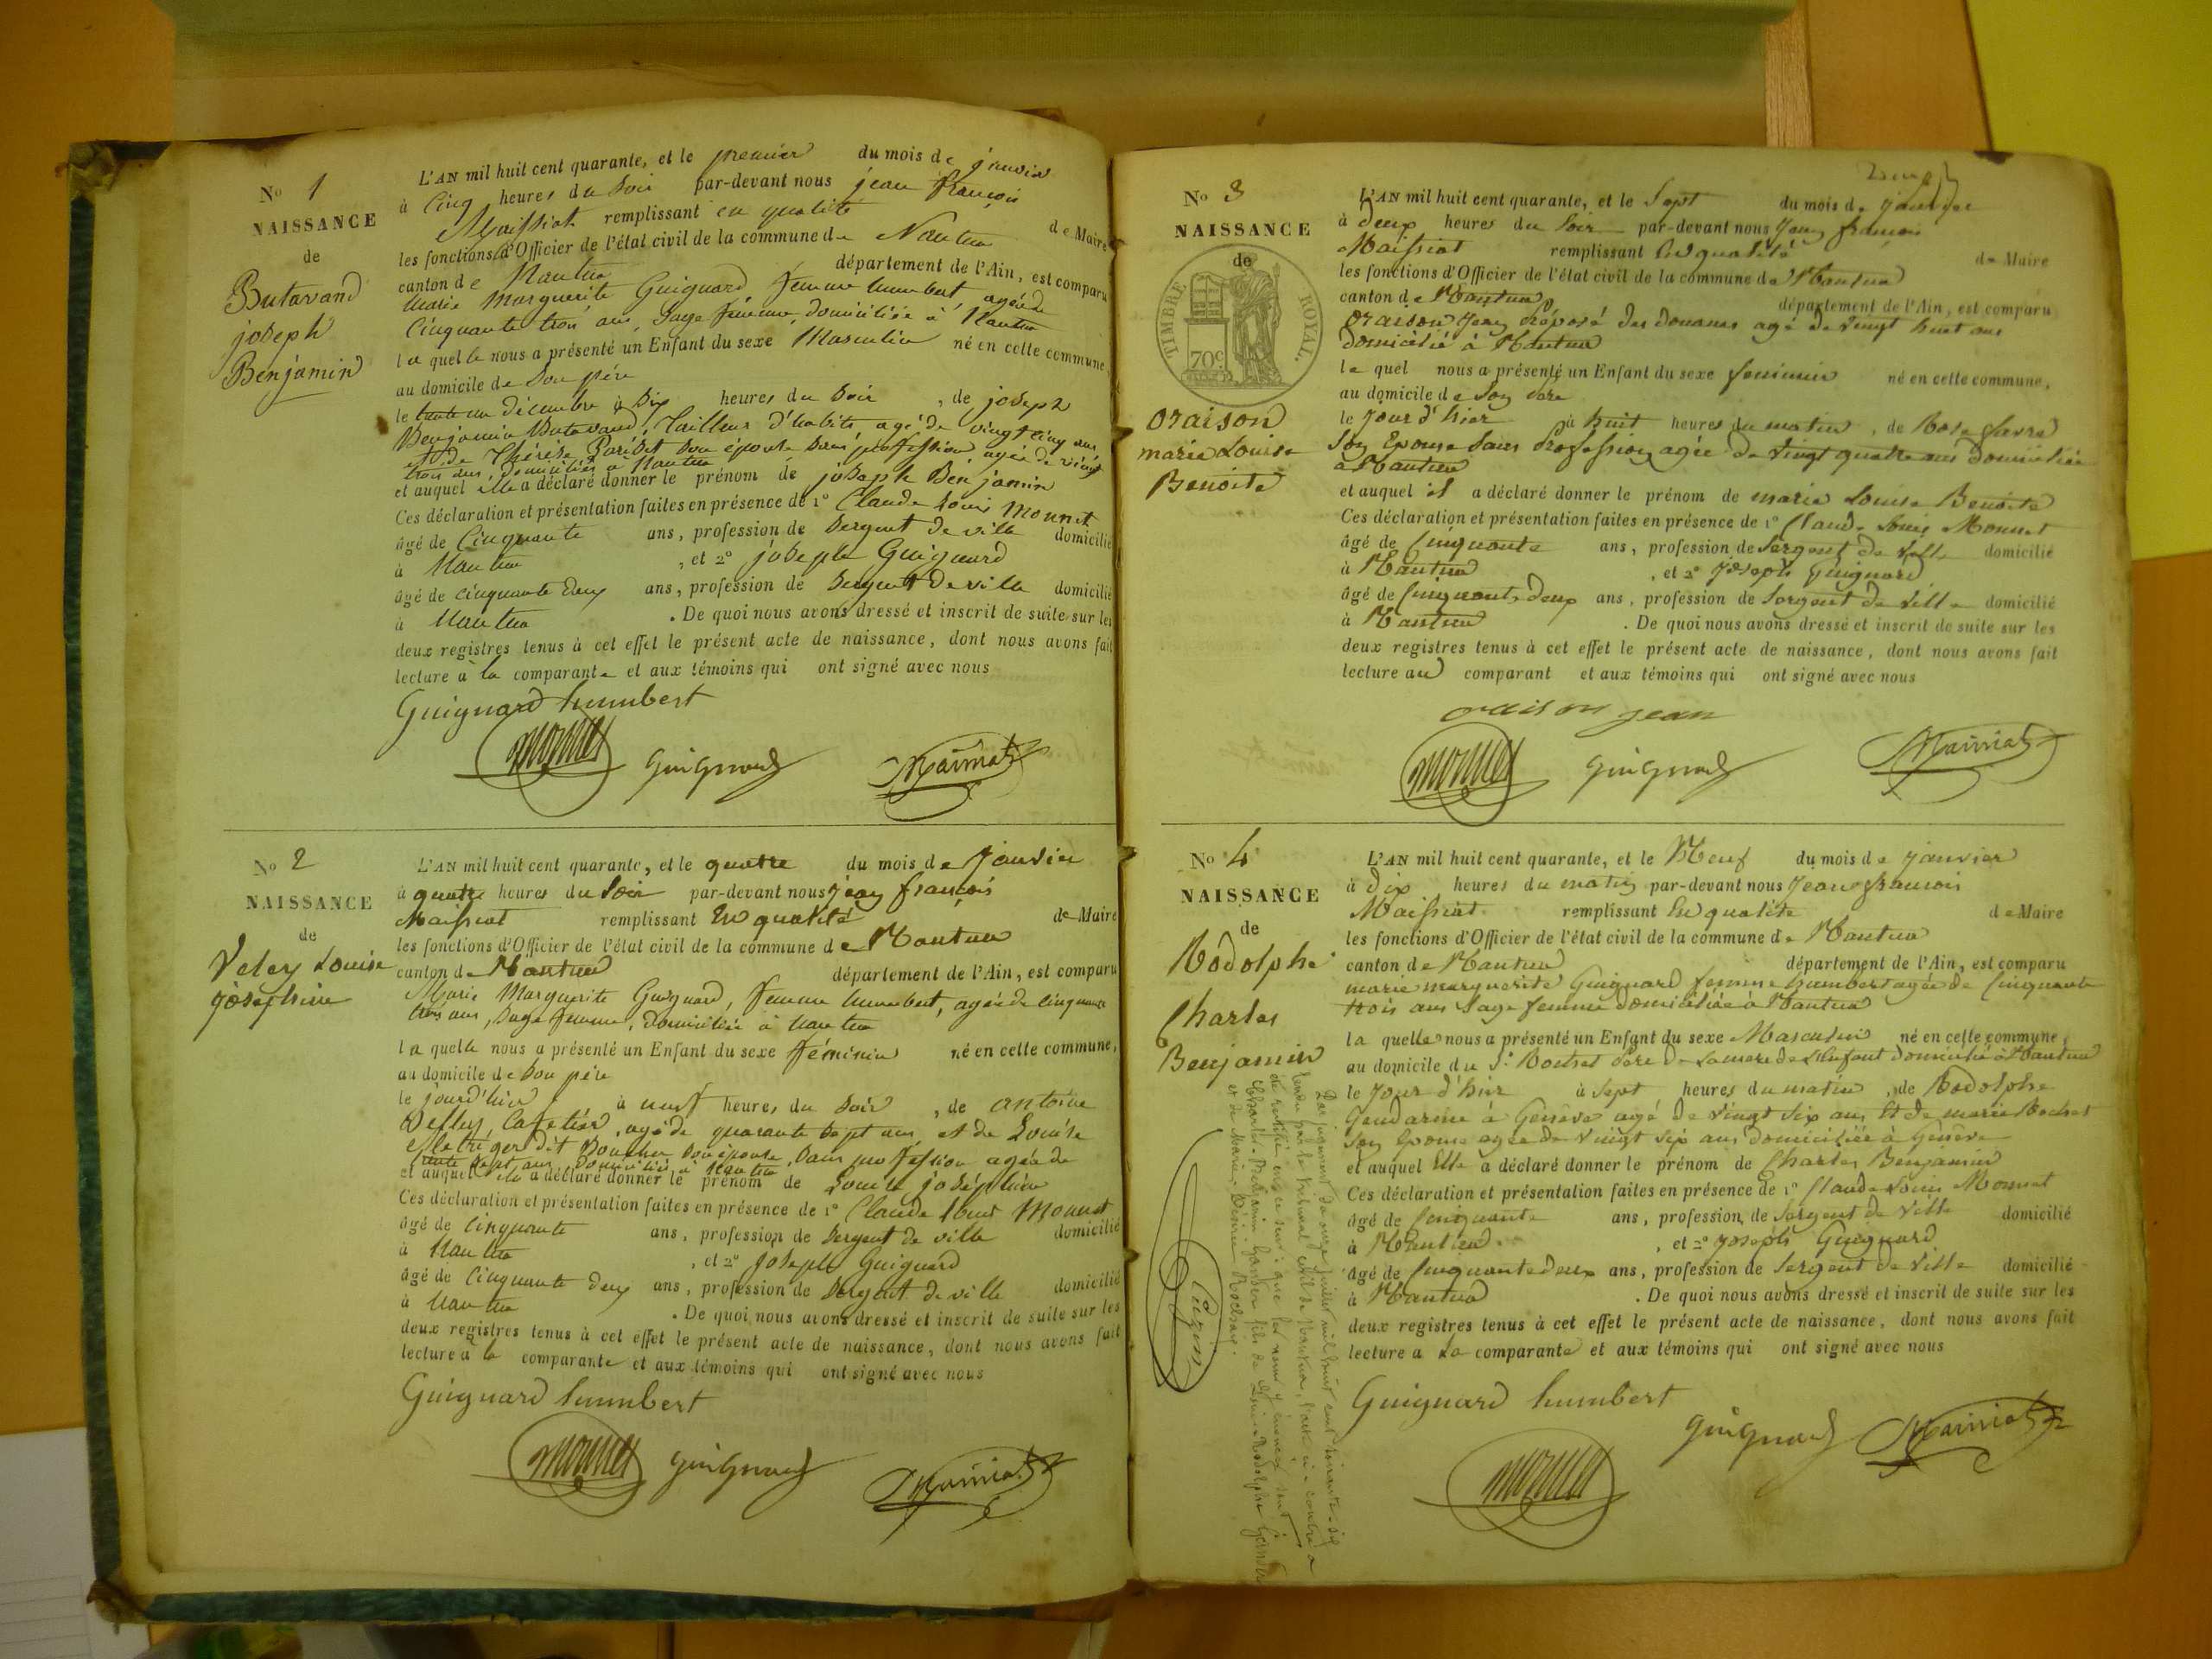 No 1
NAISSANCE
de
Butavand
joseph
Benjamin
L'AN mil huit cent quarante, et le premier du mois de janvier
à Cinq heures du Soir par-devant nous jean françois
Maissiat remplissant en qualité de Maire
les fonctions d'Officier de l'état civil de la commune de Nantua
canton de Nantua département de l'Ain, est comparu
Marie Marguerite Guignard femme humbert, agée de
Cinquante trois ans, Sage femme, domiciliée à Nantua
laquelle nous a présenté un Enfant du sexe Masculin né en cette commune,
au domicile de Son père
le trente un décembre à Dix heures du Soir, de joseph
Benjamin Butavand, Tailleur d'habits agé de vingt cinq ans
et de Thérèse son épouse sans profession agée de vingt
trois ans, domiciliés à Nantua
et auquel elle a déclaré donner le prénom de joseph Benjamin
Ces déclaration et présentation faites en présence de 1º Claude Louis Monnet
âgé de Cinquante ans, profession de Sergent de ville domicilié
à Nantua, et 2º joseph Guignard
âgé de cinquante deux ans, profession de Sergent de ville domicilié
à Nantua. De quoi nous avons dressé et inscrit de suite sur les
deux registres tenus à cet effet le présent acte de naissance, dont nous avons fait
lecture à la comparante et aux témoins qui ont signé avec nous
Guignard humbert
monnet Guignard Maissiat
No 2
NAISSANCE
de
Veley Louise
joséphine
L'AN mil huit cent quarante, et le quatre du mois de Janvier
à quatre heures du Soir par-devant nous Jean françois
Maissiat remplissant En qualité de Maire
les fonctions d'Officier de l'état civil de la commune de Nantua
canton de Nantua département de l'Ain, est comparu
Marie Marguerite Guignard, femme humbert, agée de cinquante
trois ans, Sage femme, domiciliée à Nantua
laquelle nous a présenté un Enfant du sexe féminin né en cette commune,
au domicile de Son père
le jour d'hier à neuf heures du Soir, de antoine
Cafetier, agé de quarante sept ans, et de Louise
dit son épouse, Sans profession agée de
trente sept ans, domiciliés à Nantua
et auquel elle a déclaré donner le prénom de Louise joséphine
Ces déclaration et présentation faites en présence de 1º Claude Louis Monnet
âgé de Cinquante ans, profession de Sergent de ville domicilié
à Nantua, et 2º Joseph Guignard
âgé de Cinquante deux ans, profession de Sergent de ville domicilié
à Nantua. De quoi nous avons dressé et inscrit de suite sur les
deux registres tenus à cet effet le présent acte de naissance, dont nous avons fait
lecture à la comparante et aux témoins qui ont signé avec nous
Guignard humbert
monnet Guignard Maissiat
No 3
NAISSANCE
de
TIMBRE ROYAL.
70c
oraison
marie Louise
Benoite
L'AN mil huit cent quarante, et le Sept du mois de janvier
à Deux heures du Soir par-devant nous Jean françois
Maissiat remplissant En qualité de Maire
les fonctions d'Officier de l'état civil de la commune de Nantua
canton de Nantua département de l'Ain, est comparu
oraison Jean Préposé des douanes agé de vingt huit ans
domicilié à Nantua
lequel nous a présenté un Enfant du sexe feminin né en cette commune,
au domicile de Son Père
le Jour d'hier à huit heures du matin, de Rose favre
Son Epouse Sans Profession agée de vingt quatre ans domiciliée
à Nantua
et auquel il a déclaré donner le prénom de marie Louise Benoite
Ces déclaration et présentation faites en présence de 1º Claude Louis Monnet
âgé de Cinquante ans, profession de Sergent de Ville domicilié
à Nantua, et 2º Joseph Guignard
âgé de Cinquante deux ans, profession de Sergent de Ville domicilié
à Nantua. De quoi nous avons dressé et inscrit de suite sur les
deux registres tenus à cet effet le présent acte de naissance, dont nous avons fait
lecture au comparant et aux témoins qui ont signé avec nous
oraison jean
monnet Guignard Maissiat
No 4
NAISSANCE
de
Rodolphe
Charles
Benjamin
L'AN mil huit cent quarante, et le Neuf du mois de janvier
à Dix heures du matin par-devant nous Jean francois
Maissiat remplissant En qualité de Maire
les fonctions d'Officier de l'état civil de la commune de Nantua
canton de Nantua département de l'Ain, est comparu
marie marguerite Guignard femme humbert agée de Cinquante
trois ans Sage femme domiciliée à Nantua
la quelle nous a présenté un Enfant du sexe Masculin né en cette commune,
au domicile du Sr Père de La mère de L'Enfant domicilié à Nantua
le Jour d'hier à Sept heures du matin, de Rodolphe
Gendarme à Genève agé de vingt Six ans Et de marie
Son Epouse agée de vingt Six ans domiciliée à Genève
et auquel Elle a déclaré donner le prénom de Charles Benjamin
Ces déclaration et présentation faites en présence de 1º Claude Louis Monnet
âgé de Cinquante ans, profession de Sergent de Ville domicilié
à Nantua, et 2º Joseph Guignard
âgé de Cinquante deux ans, profession de Sergent de Ville domicilié
à Nantua. De quoi nous avons dressé et inscrit de suite sur les
deux registres tenus à cet effet le présent acte de naissance, dont nous avons fait
lecture a La comparante et aux témoins qui ont signé avec nous
Guignard humbert
monnet Guignard Maissiat
Par jugement du onze juillet mil huit cent soixante-six
rendu par le tribunal civil de Nantua, l'acte ci-contre a
été rectifié en ce sens: que les noms y énoncés sont
Charles-Benjamin fils de Rodolphe
et de Marie